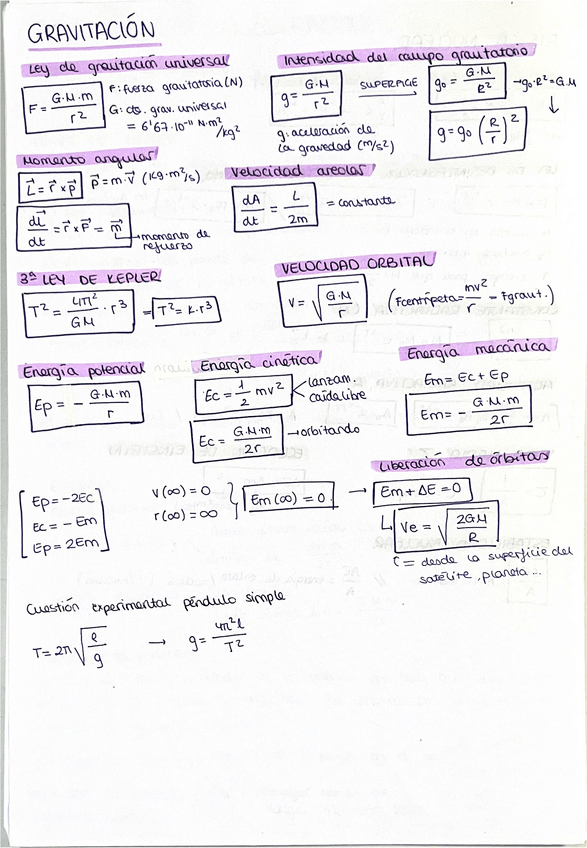 GRAVITACIÓN
Ley de gravitación universal
F = G·M·m / r²
F: fuerza gravitatoria (N)
G: cte. grav. universal
= 6'67·10⁻¹¹ N·m²/kg²
Intensidad del campo gravitatorio
g = G·M / r² SUPERFICIE → g₀ = G·M / R² → g₀·R² = G.M
↓
g = g₀ (R/r)²
g: aceleración de
la gravedad (m/s²)
Momento angular
L⃗ = r⃗ × p⃗ p⃗ = m·v⃗ (kg·m²/s)
dL⃗/dt = r⃗ × F⃗ = m⃗ → momento de
refuerzo
Velocidad areolar
dA/dt = L/2m = constante
3ª LEY DE KEPLER
T² = 4π²/GM · r³ = T² = k·r³
VELOCIDAD ORBITAL
v = √(G·M / r) (Fcentrípeta = mv²/r = Fgravit.)
Energía potencial
Ep = - G·M·m / r
Energía cinética
Ec = 1/2 mv² < lanzam.
caída libre
Ec = G·M·m / 2r → orbitando
Energía mecánica
Em = Ec + Ep
Em = - G·M·m / 2r
Ep = -2Ec
Ec = - Em
Ep = 2Em
v(∞) = 0
r(∞) = ∞
} Em(∞) = 0 →
Liberación de órbitas
Em + ΔE = 0
↳ Ve = √(2GM / R)
= desde la superficie del
satélite, planeta...
Cuestión experimental péndulo simple
T = 2π √(l/g) → g = 4π²l / T²